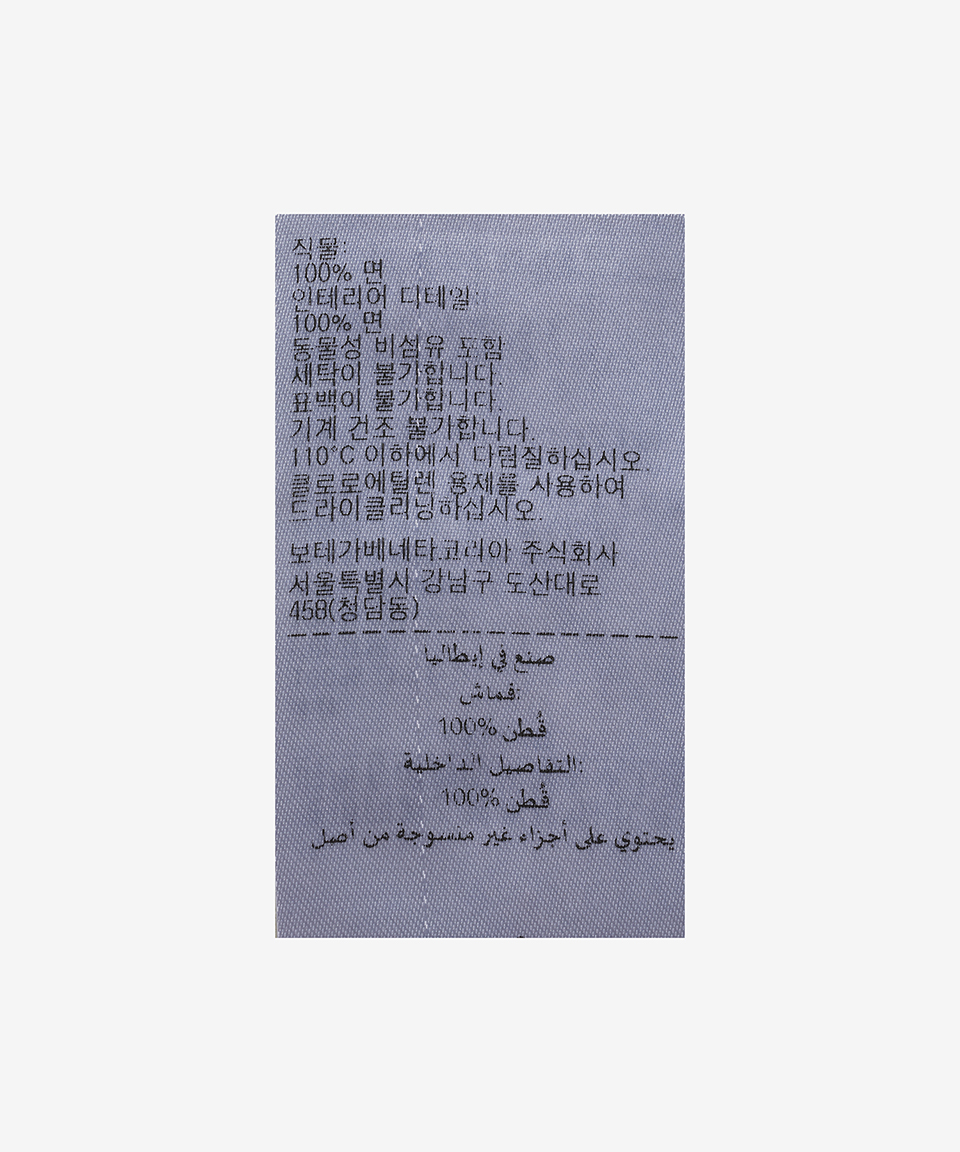 직물:
100% 면
인테리어 디테일:
100% 면
동물성 비섬유 포함
세탁이 불가합니다.
표백이 불가합니다.
기계 건조 불가합니다.
110°C 이하에서 다림질하십시오.
클로로에틸렌 용제를 사용하여
드라이클리닝하십시오.
보테가베네타코리아 주식회사
서울특별시 강남구 도산대로
458(청담동)
صنع في إيطاليا
قماش:
100% قُطن
التفاصيل الداخلية:
100% قُطن
يحتوي على أجزاء غير منسوجة من أصل